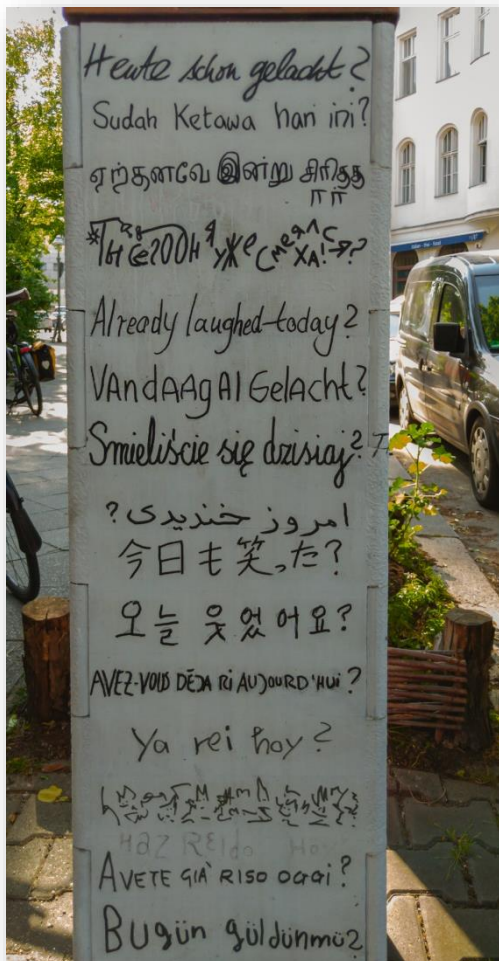 Heute schon gelacht?
Sudah Ketawa hari ini?
ஏற்தனவே இன்று சிரித்த
ார்
Ты сегодня уже смеялся?
Already laughed today?
VANDAAG Al Gelacht?
Smieliście się dzisiaj?
امروز خندیدی؟
今日も笑った?
오늘 웃었어요?
AVEZ-VOUS DÉJA RI AUJOURD'HUI?
Ya rei hoy?
HaZ REIdo Ho
AVETE GIA' RISO OGGI?
Bugün güldünmü?